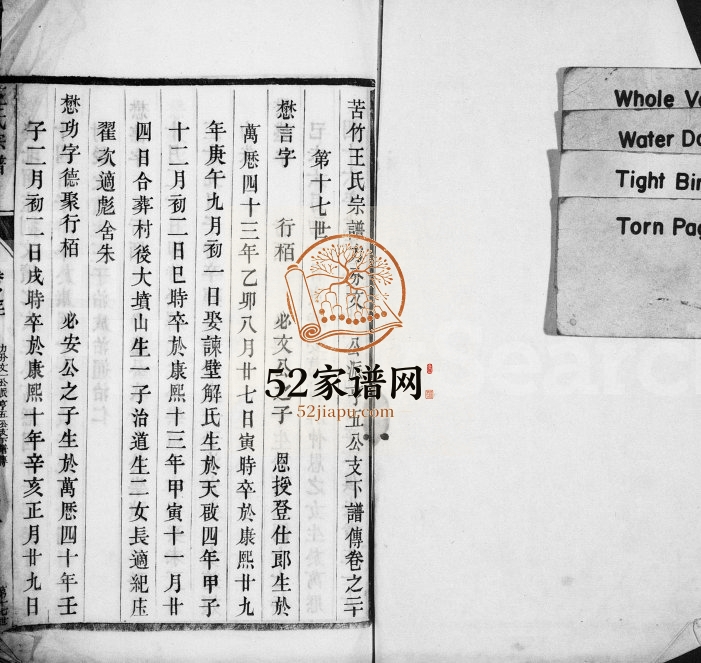 苦竹王氏宗譜 公派 五公支下譜傳卷之二十
第十七世
懋言字 行栢 必文公之子 恩授登仕郎生於
萬厯四十三年乙卯八月廿七日寅時卒於康熙廿九
年庚午九月初一日娶諫壁解氏生於天啟四年甲子
十二月初二日巳時卒於康熙十三年甲寅十一月廿
四日合葬村後大墳山生一子治道生二女長適紀庄
翟次適彪舍朱
懋功字德聚行栢 必安公之子生於萬厯四十年壬
子二月初二日戌時卒於康熙十年辛亥正月廿九日
52家谱网
52jiapu.com
Whole V
Water Da
Tight Bin
Torn Pag